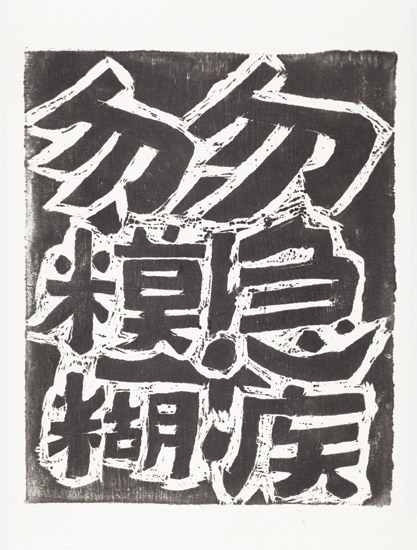 勿急疾
勿糢糊